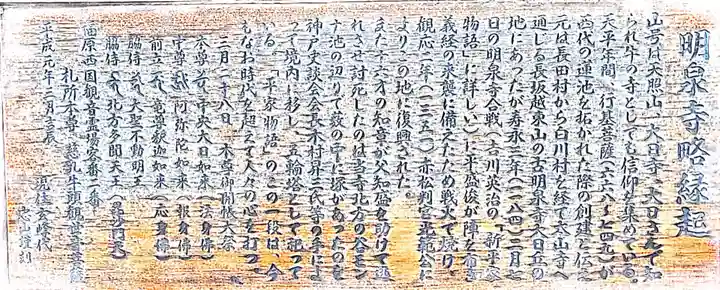 明泉寺略縁起
山号は大照山、大日寺(大日さん)で知
られ牛の寺としても信仰を集めている。
天平年間、行基菩薩(六六八~七四九)が
西代の蓮池を拓かれた際の創建と伝え
元は長田村から白川村を経て太山寺へ
通じる長坂越東山の古明泉寺大日丘の
地にあったが寿永三年(一一八四)三月七
日の明泉寺合戦(吉川英治の「新平家
物語」に詳しい)に平盛俊が陣を布き
義経の来襲に備えたため戦火で焼け、
観応二年(一三五一)赤松判官光範公に
よりこの地に復興された。
また十六才の知章が父知盛を助けて逃
れさせ討死したのは当寺北方の谷モン
ナ池の辺りで藪の中に塚があったのを
神戸史談会会長木村昇三氏等の手によ
って境内に移し、五輪塔として祀って
いる。「平家物語」のこの一段は、今
もなお時代を超えて人々の心を打つ。
三月二十八日 本尊御開帳大祭
本尊 中央大日如来(法身佛)
中尊 阿弥陀如来(報身佛)
前立 竜尊釈迦如来(応身佛)
脇侍 大聖不動明王
脇侍 北方多聞天王(毘沙門天)
福原西国観音霊場客番一番
札所本尊
牛頭観世音菩薩
平成元年三月吉辰